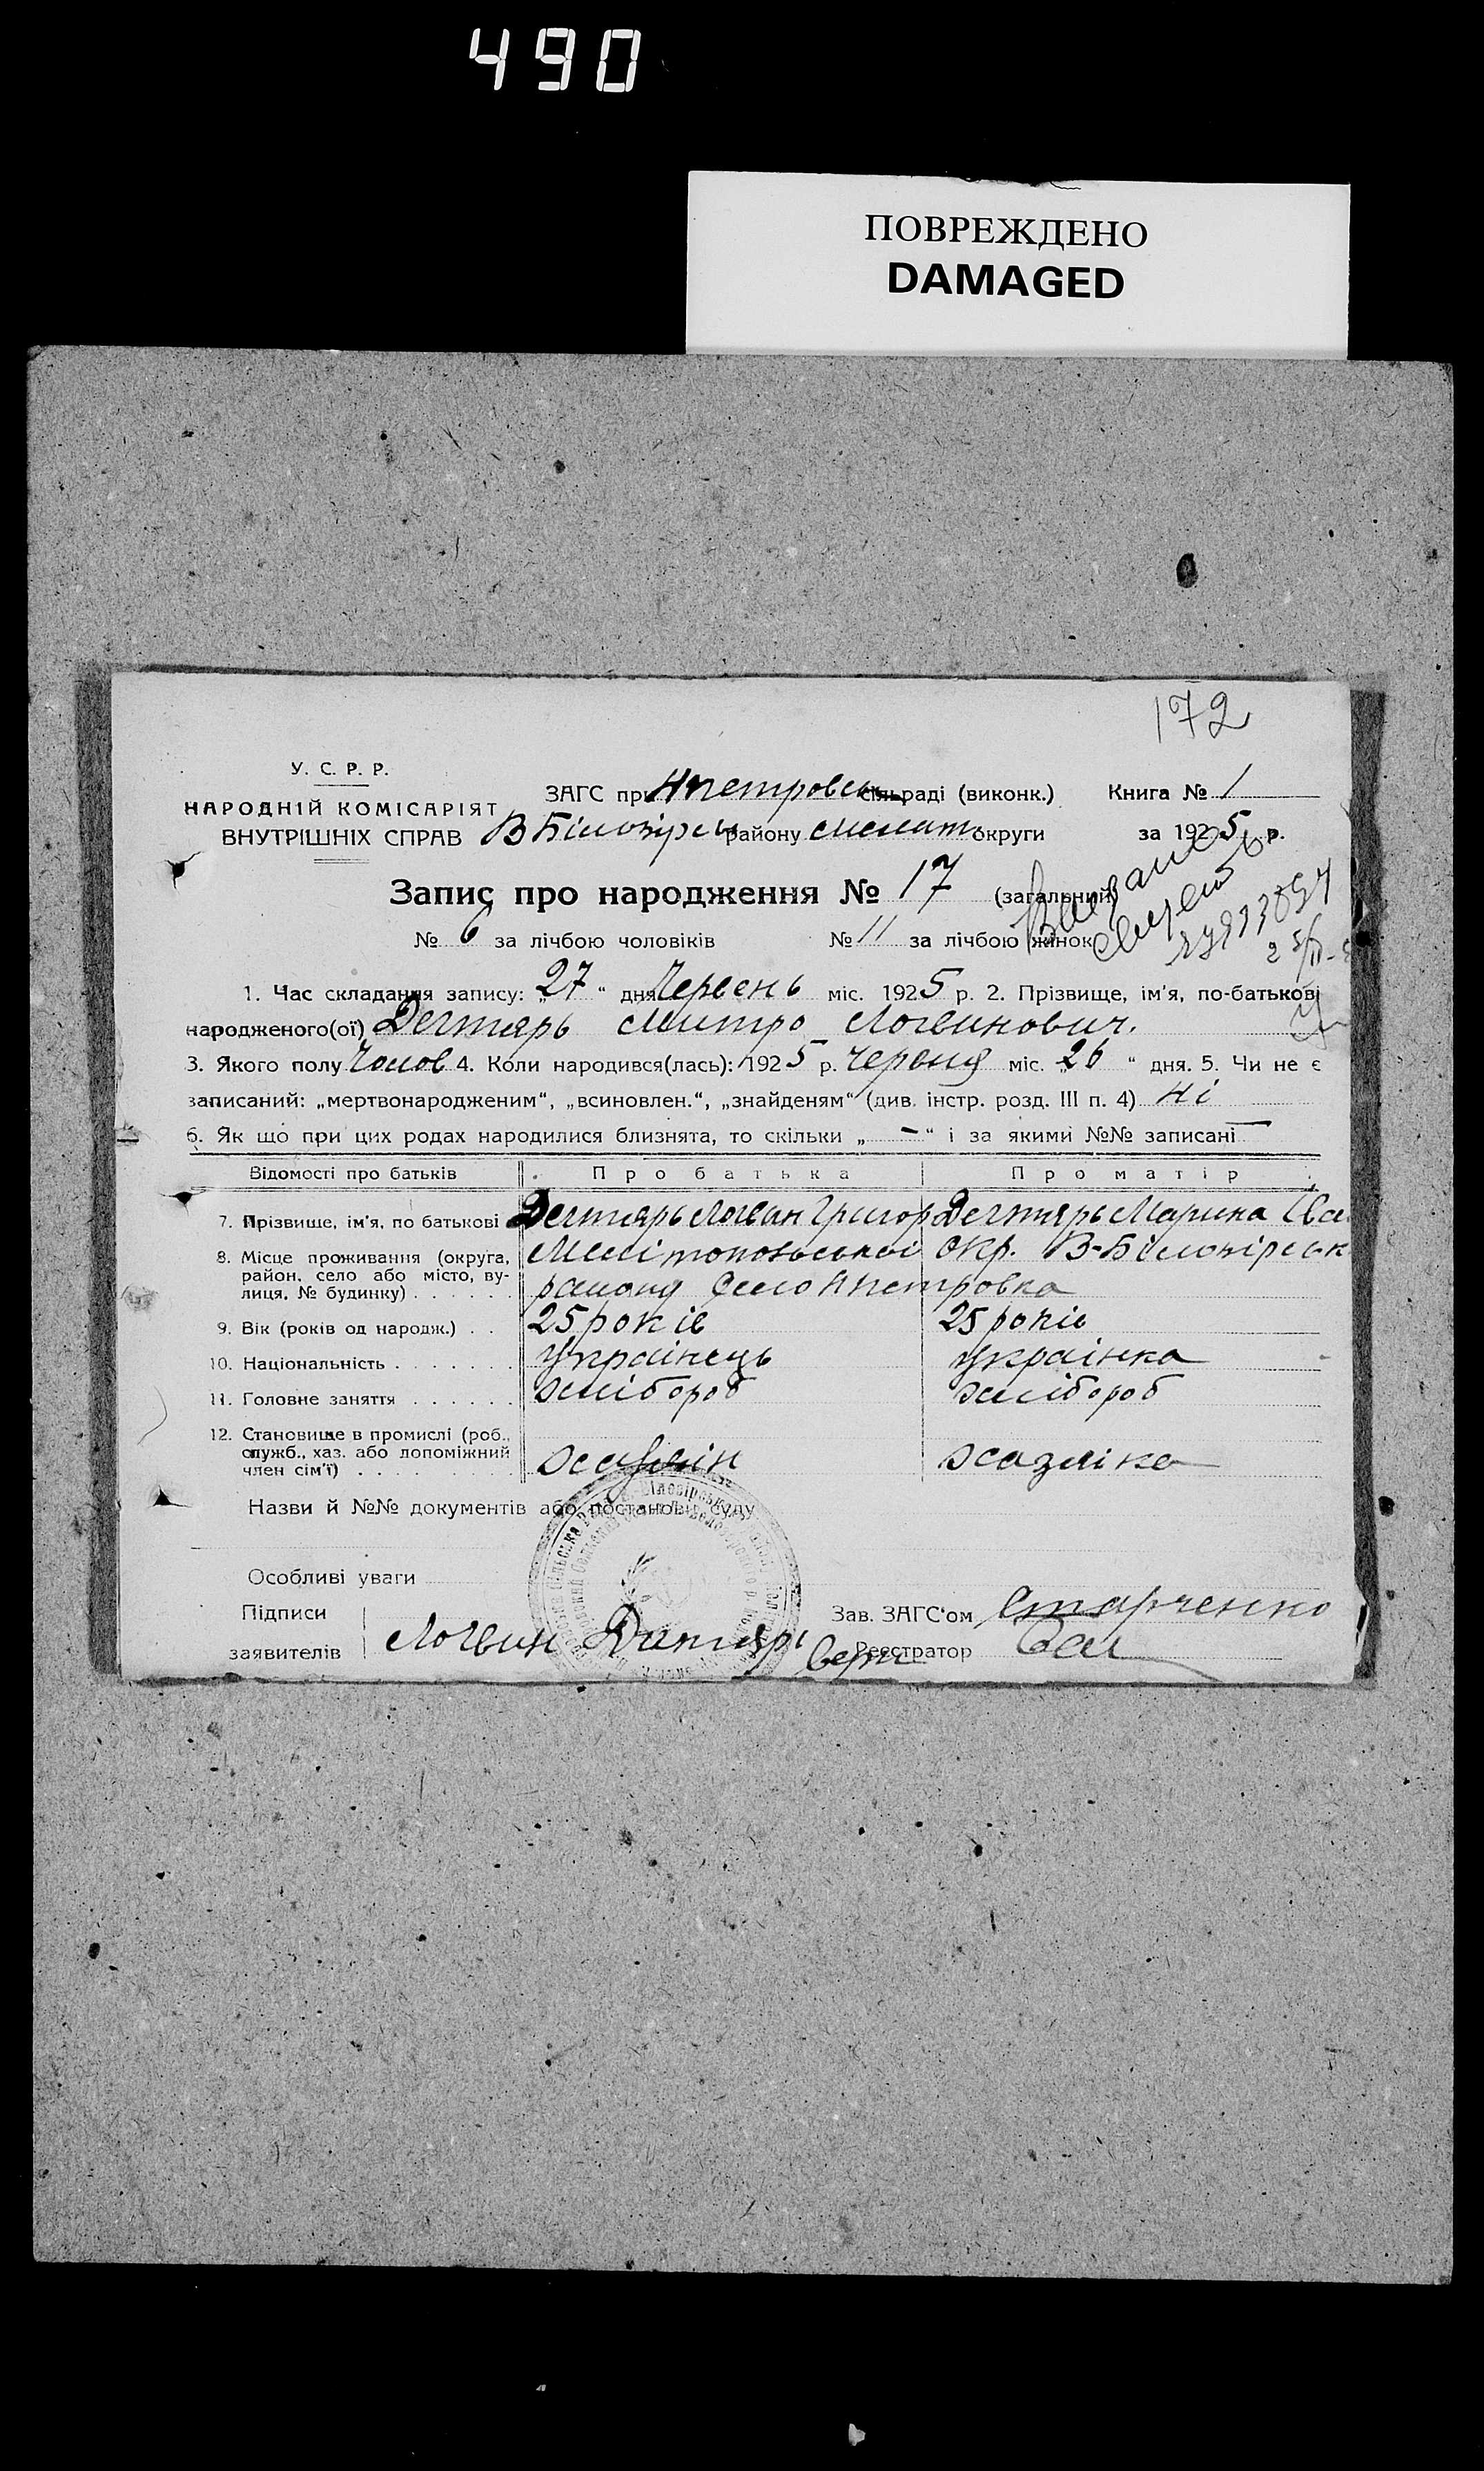 490
ПОВРЕЖДЕНО
DAMAGED
172
У. С. Р. Р.
НАРОДНІЙ КОМІСАРІЯТ
ВНУТРІШНІХ СПРАВ
ЗАГС при Нпетровськ сільраді (виконк.) Книга № 1
В Білозірськ району Меліт округи за 1925 р.
Запис про народження № 17 (загальний)
№ 6 за лічбою чоловіків № 11 за лічбою жінок
1. Час складання запису: „27“ дня Червень міс. 1925 р. 2. Прізвище, ім'я, по-батькові
народженого(ої) Дегтярь Митро Логвинович.
3. Якого полу Чолов 4. Коли народився(лась): 1925 р. Червня міс. 26 “ дня. 5. Чи не є
записаний: „мертвонародженим“, „всиновлен.“, „знайденям“ (див. інстр. розд. III п. 4) Ні
6. Як що при цих родах народилися близнята, то скільки „ - “ і за якими №№ записані —
Відомості про батьків Про батька Про матір
7. Прізвище, ім'я, по батькові Дегтярь Логвин Григор Дегтярь Марина Iва
8. Місце проживання (округа, Мелітопольської Окр. В-Білозірськ
район, село або місто, ву-
лиця, № будинку) . . . . . . району Село Нпетровка
9. Вік (років од народж.) . . 25 років 25 років
10. Національність . . . . . . . Українець Українка
11. Головне заняття . . . . . . хлібороб хлібороб
12. Становище в промислі (роб.,
служб., хаз. або допоміжний
член сім'ї) . . . . . . . . хазяїн хазяїка
Назви й №№ документів або постанов суду
Особливі уваги
Підписи
заявителів Логвин Дактярь
Зав. ЗАГС'ом Старченко
Реєстратор